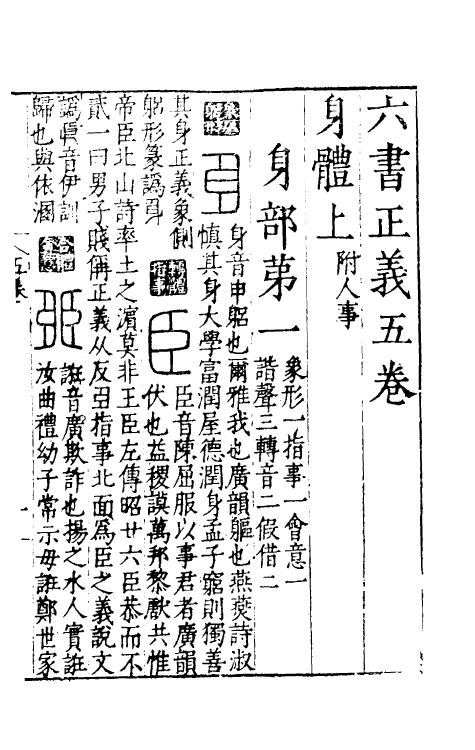 六書正義五卷
身體上
附人事
身部苐一
象形一指事一會意一
諧聲三轉音二假借二
身音申躳也爾雅我也廣韻軀也燕燕詩淑
慎其身大學富潤屋德潤身孟子窮則獨善
其身正義象側
躳形篆譌身
臣音陳屈服以事君者廣韻
伏也益稷謨萬邦黎獻共惟
帝臣北山詩率土之濵莫非王臣左傳昭廿六臣恭而不
貳一曰男子賤稱正義从反𦣞指事北面爲臣之義說文
譌
音伊訓
歸也與依溷
誑音廣欺詐也揚之水人實誑
汝曲禮幼子常示毋誑鄭世家